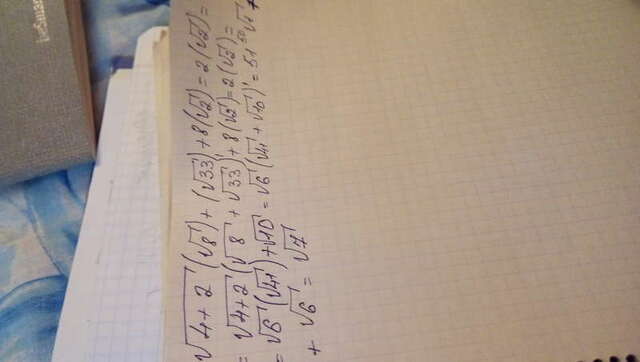 √4+2 (√8) + (√33) + 8(√2) = 2(√2) =
= √4+2 (√8 + √33) + 8(√2) = 2(√2) =
= √6 (√41) + √10 = √6 (√41 + √10) = 51
+ √6 = √7